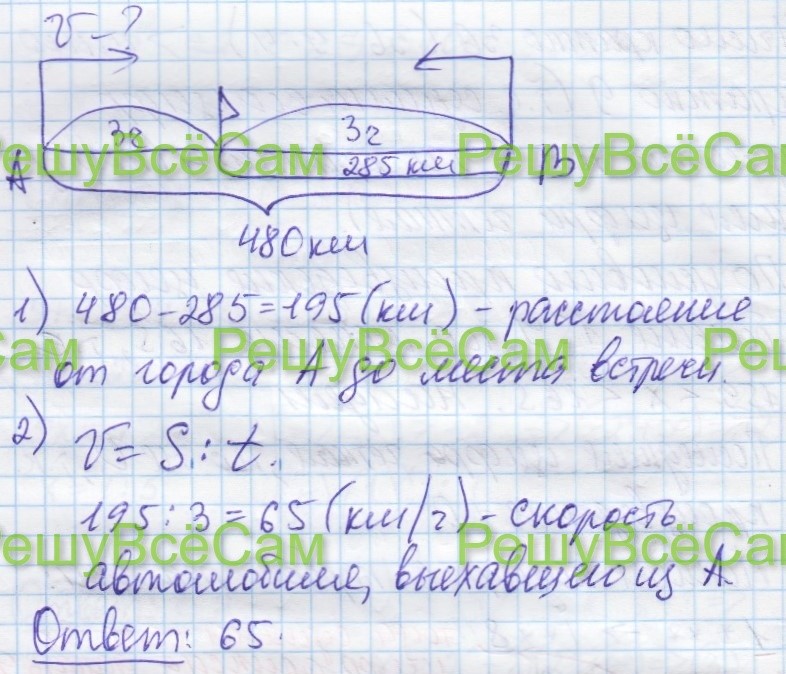 V-?
3ч
3ч
РешуВсёСам
РешуВсёСам
A
285 км
B
480 км
1) 480-285=195(км) - расстояние
РешуВсёСам
РешуВсёСам
РешуВсёСам
от города А до места встречи.
2) V= S : t.
195:3=65(км/ч)- скорость
РешуВсёСам
РешуВсёСам
автомобиля, выехавшего из А
Ответ: 65.